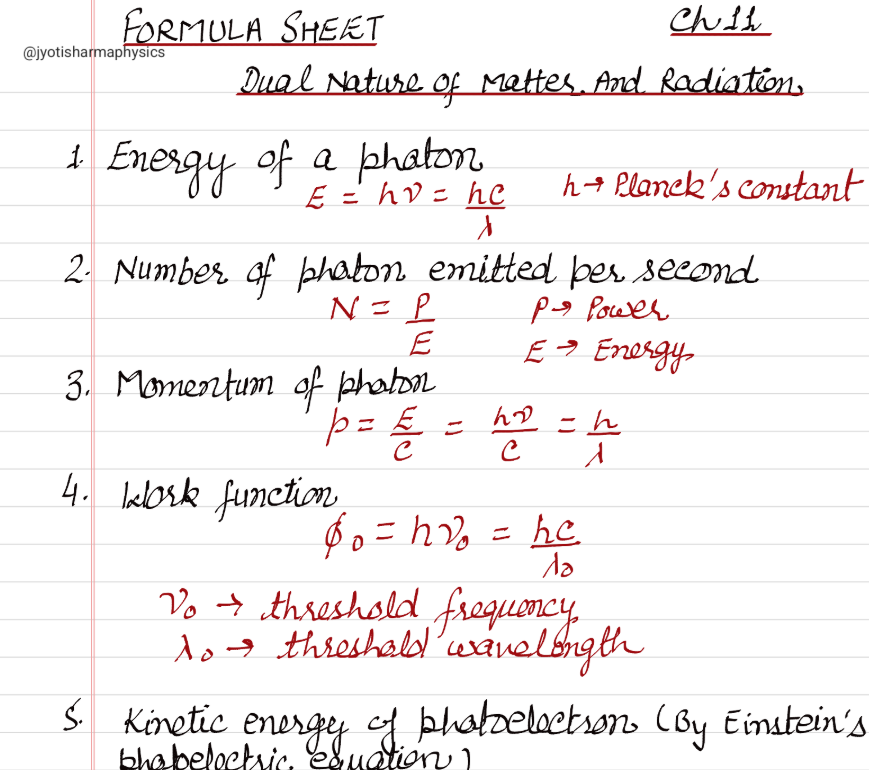 FORMULA SHEET Ch 11
@jyotisharmaphysics
Dual Nature of Matter And Radiation
1. Energy of a photon
E = hν = hc/λ h→ Planck's constant
2. Number of photon emitted per second
N = P/E P→ Power
E → Energy
3. Momentum of photon
p = E/C = hν/C = h/λ
4. Work function
ϕ₀ = hν₀ = hc/λ₀
ν₀ → threshold frequency
λ₀ → threshold wavelength
5. Kinetic energy of photoelectron (By Einstein's
photoelectric equation)